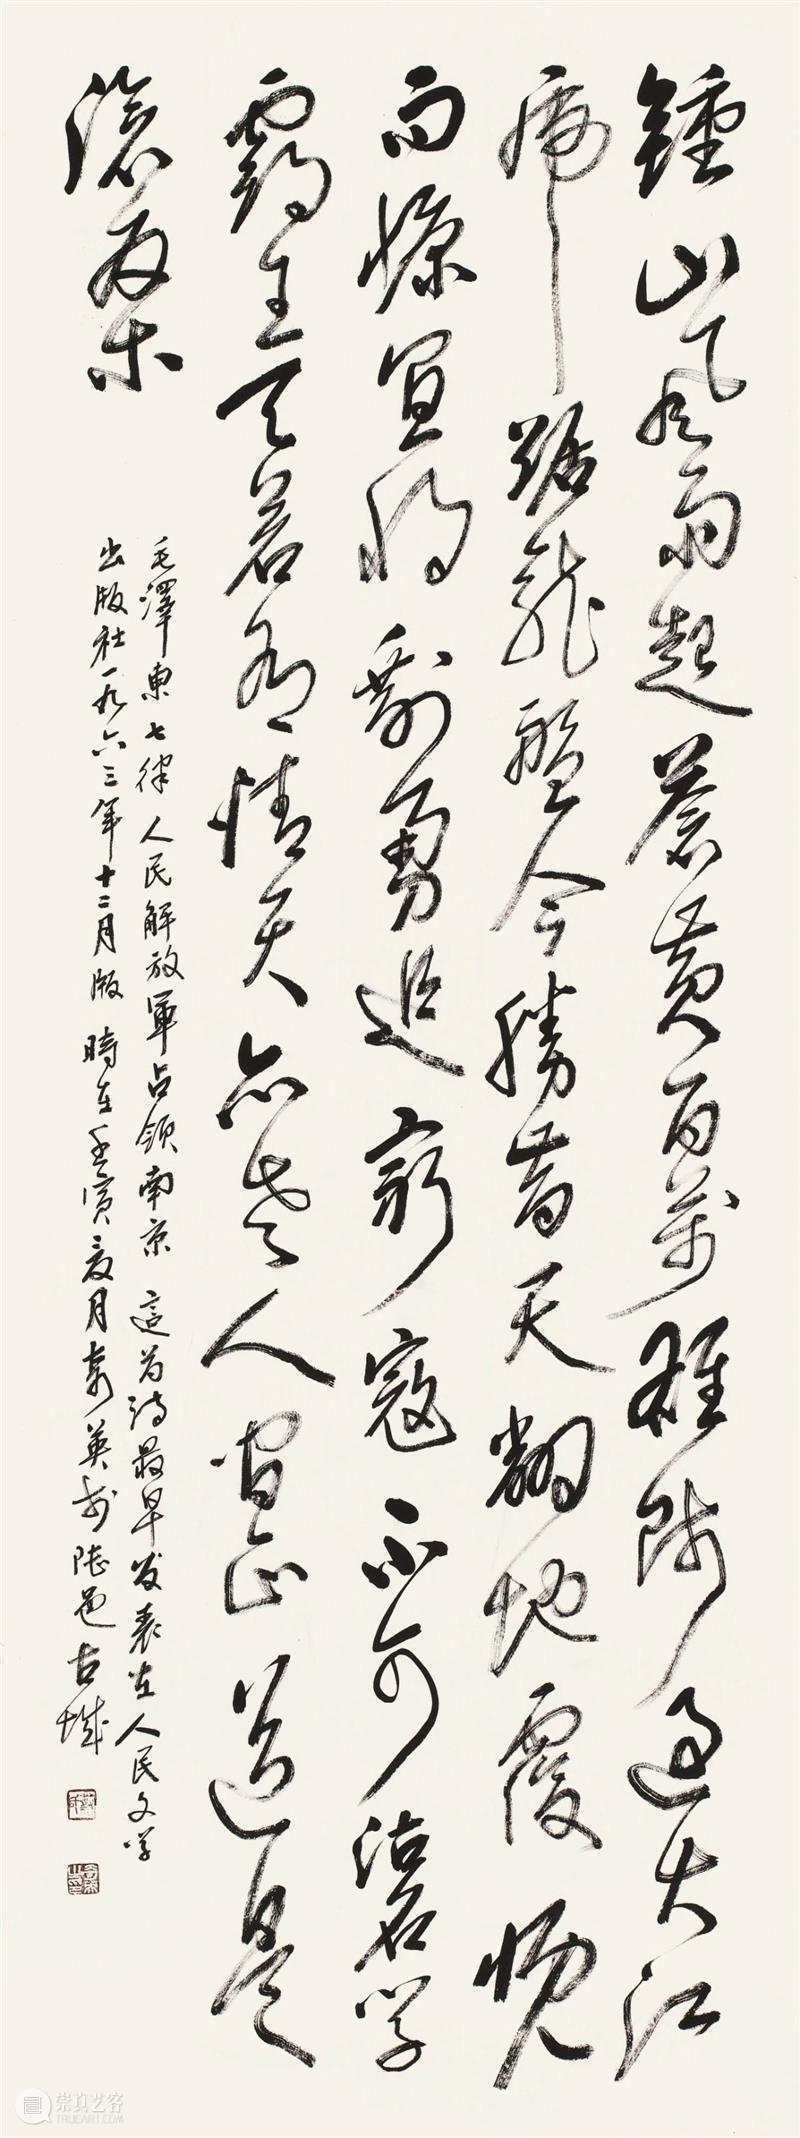 鍾山風雨起蒼黄百萬雄師過大江
虎踞龍盤今勝昔天翻地覆慨
而慷宜將剩勇追窮寇不可沽名學
霸王天若有情天亦老人間正道是
滄桑
毛澤東七律人民解放軍占領南京 這首詩最早发表在人民文学
出版社一九六三年十二月版 時在壬寅夏月 英 邑古城
崇真艺客
TRUEART.COM